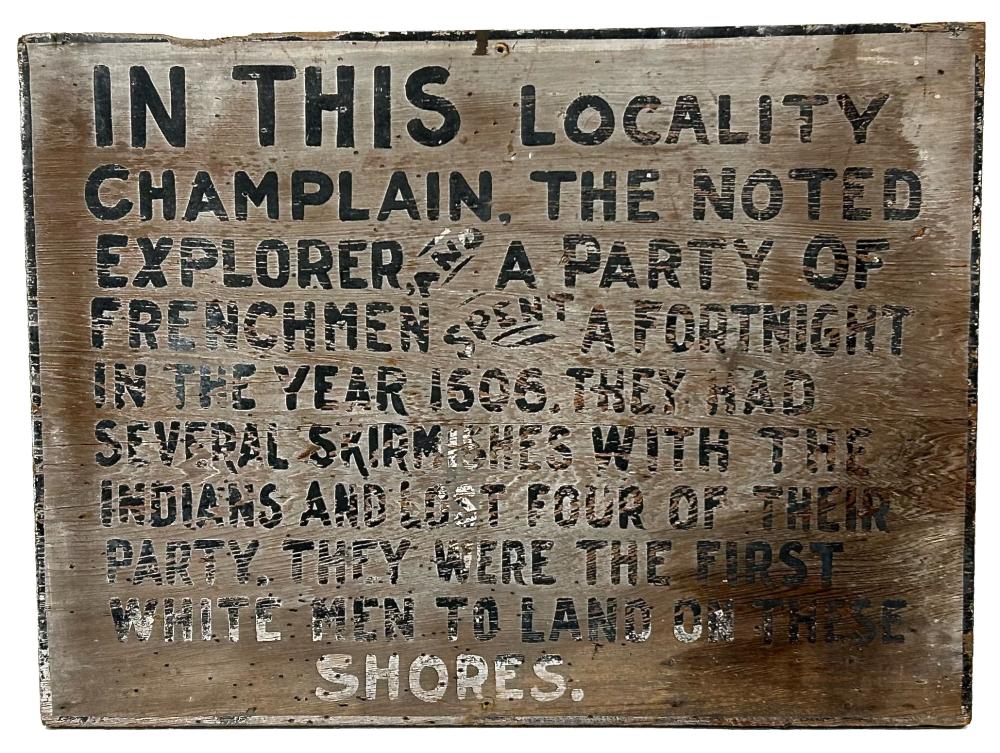 IN THIS LOCALITY
CHAMPLAIN, THE NOTED
EXPLORER, AND A PARTY OF
FRENCHMEN SPENT A FORTNIGHT
IN THE YEAR 1606. THEY HAD
SEVERAL SKIRMISHES WITH THE
INDIANS AND LOST FOUR OF THEIR
PARTY. THEY WERE THE FIRST
WHITE MEN TO LAND ON THESE
SHORES.